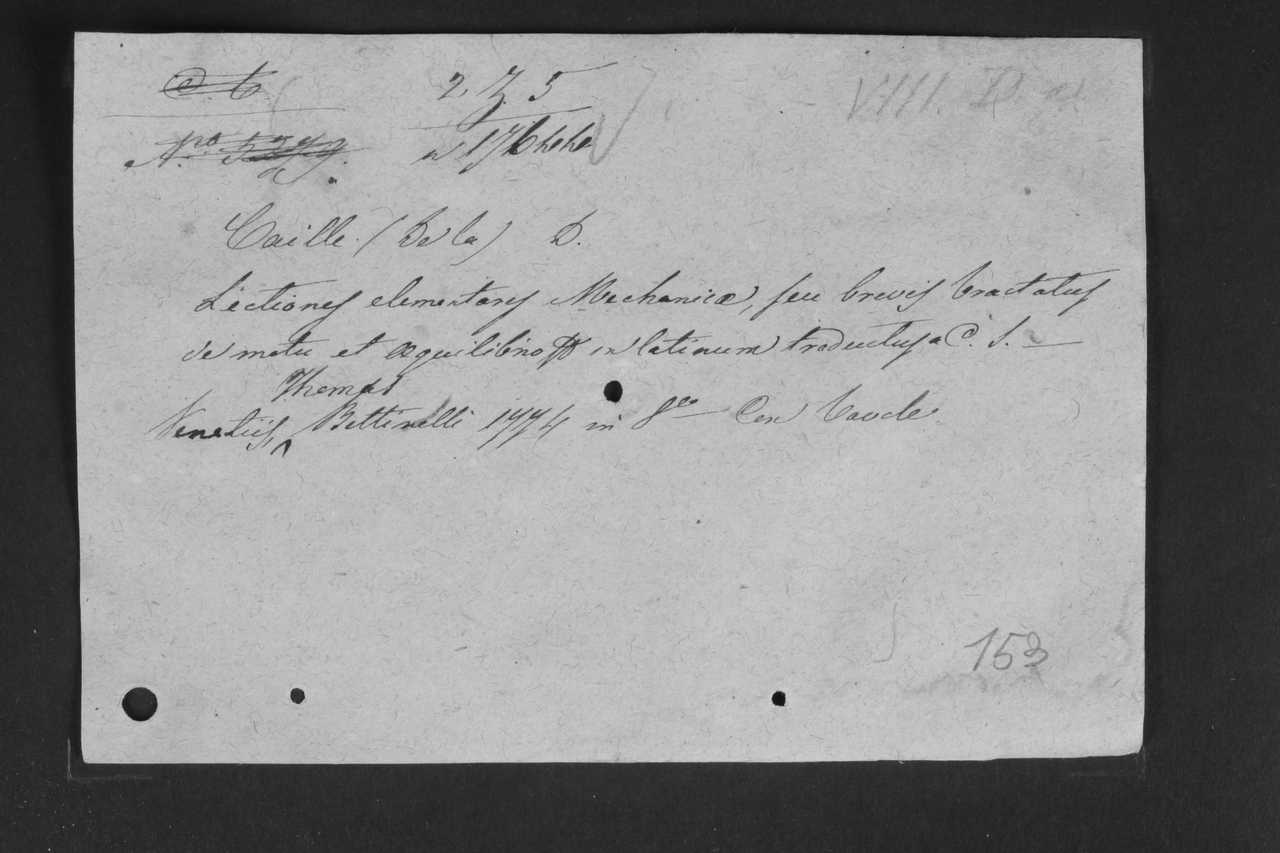 C. C. 2. Z. 5 VIII. D.
N.ro 5279.
Caille (De la) D.
Lectiones elementares Mechanicæ, seu brevis tractatus
de motu et æquilibrio in latinum traductus a C. S.
Thomas
Venetiis, Bettinelli 1774 in 8vo Con Tavole.
153